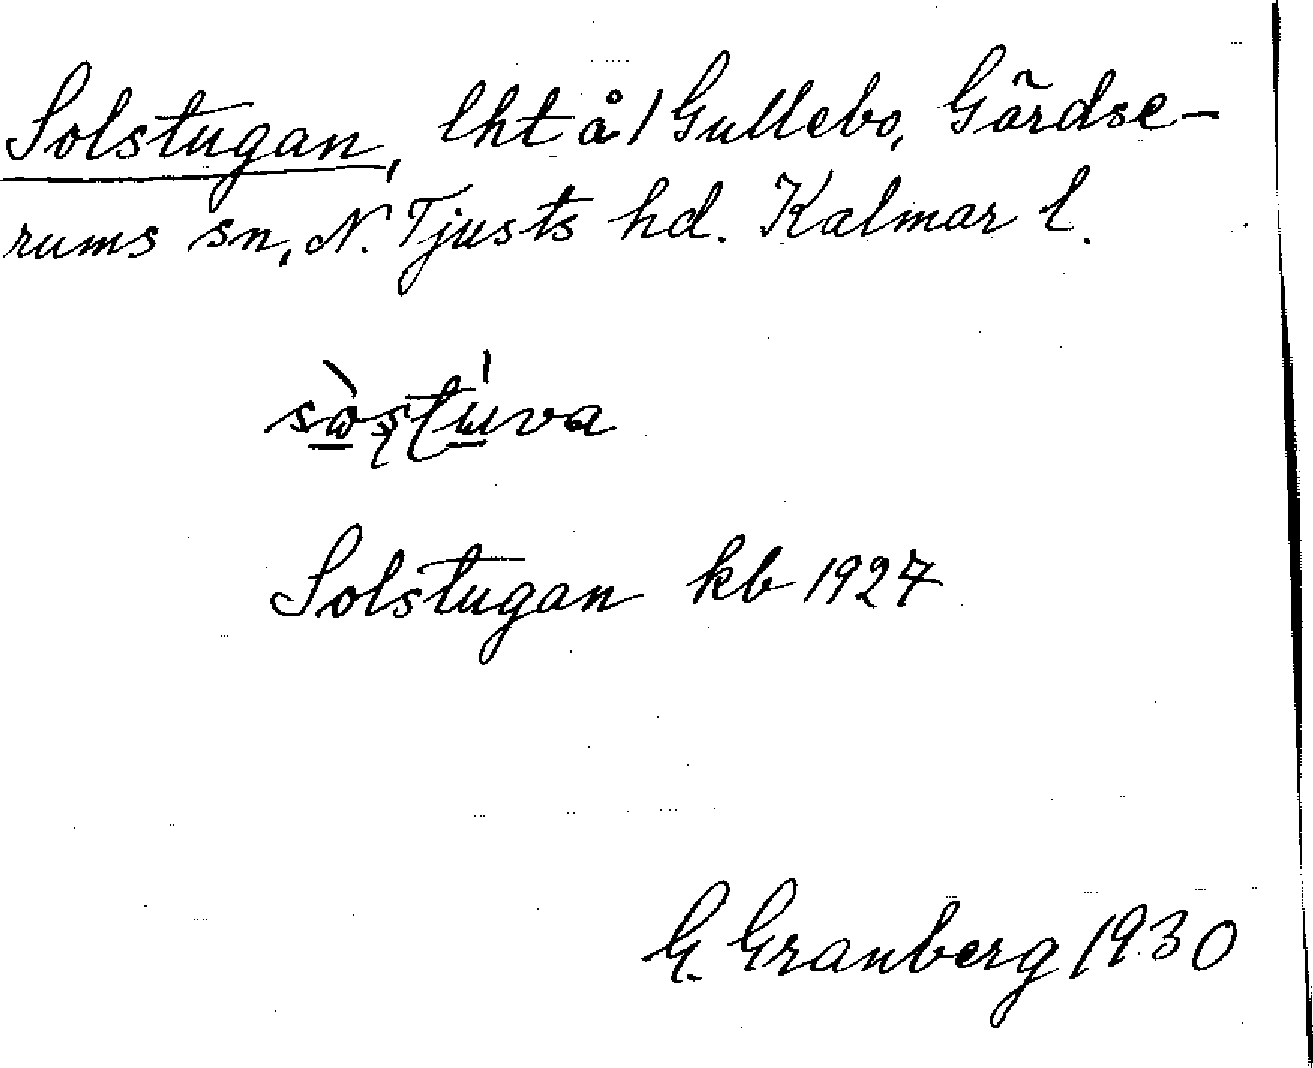 Solstugan, lht å 1 Gullebo, Gärdse-
rums sn, N. Tjusts hd. Kalmar l.
Solstugan kb 1927
G. Granberg 1930